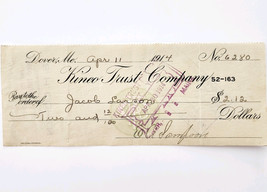 Dover, Me. Apr 11 1914 No. 6280
Kineo Trust Company 52-163
Pay to the order of Jacob $2.12
Two and 12/100 Dollars